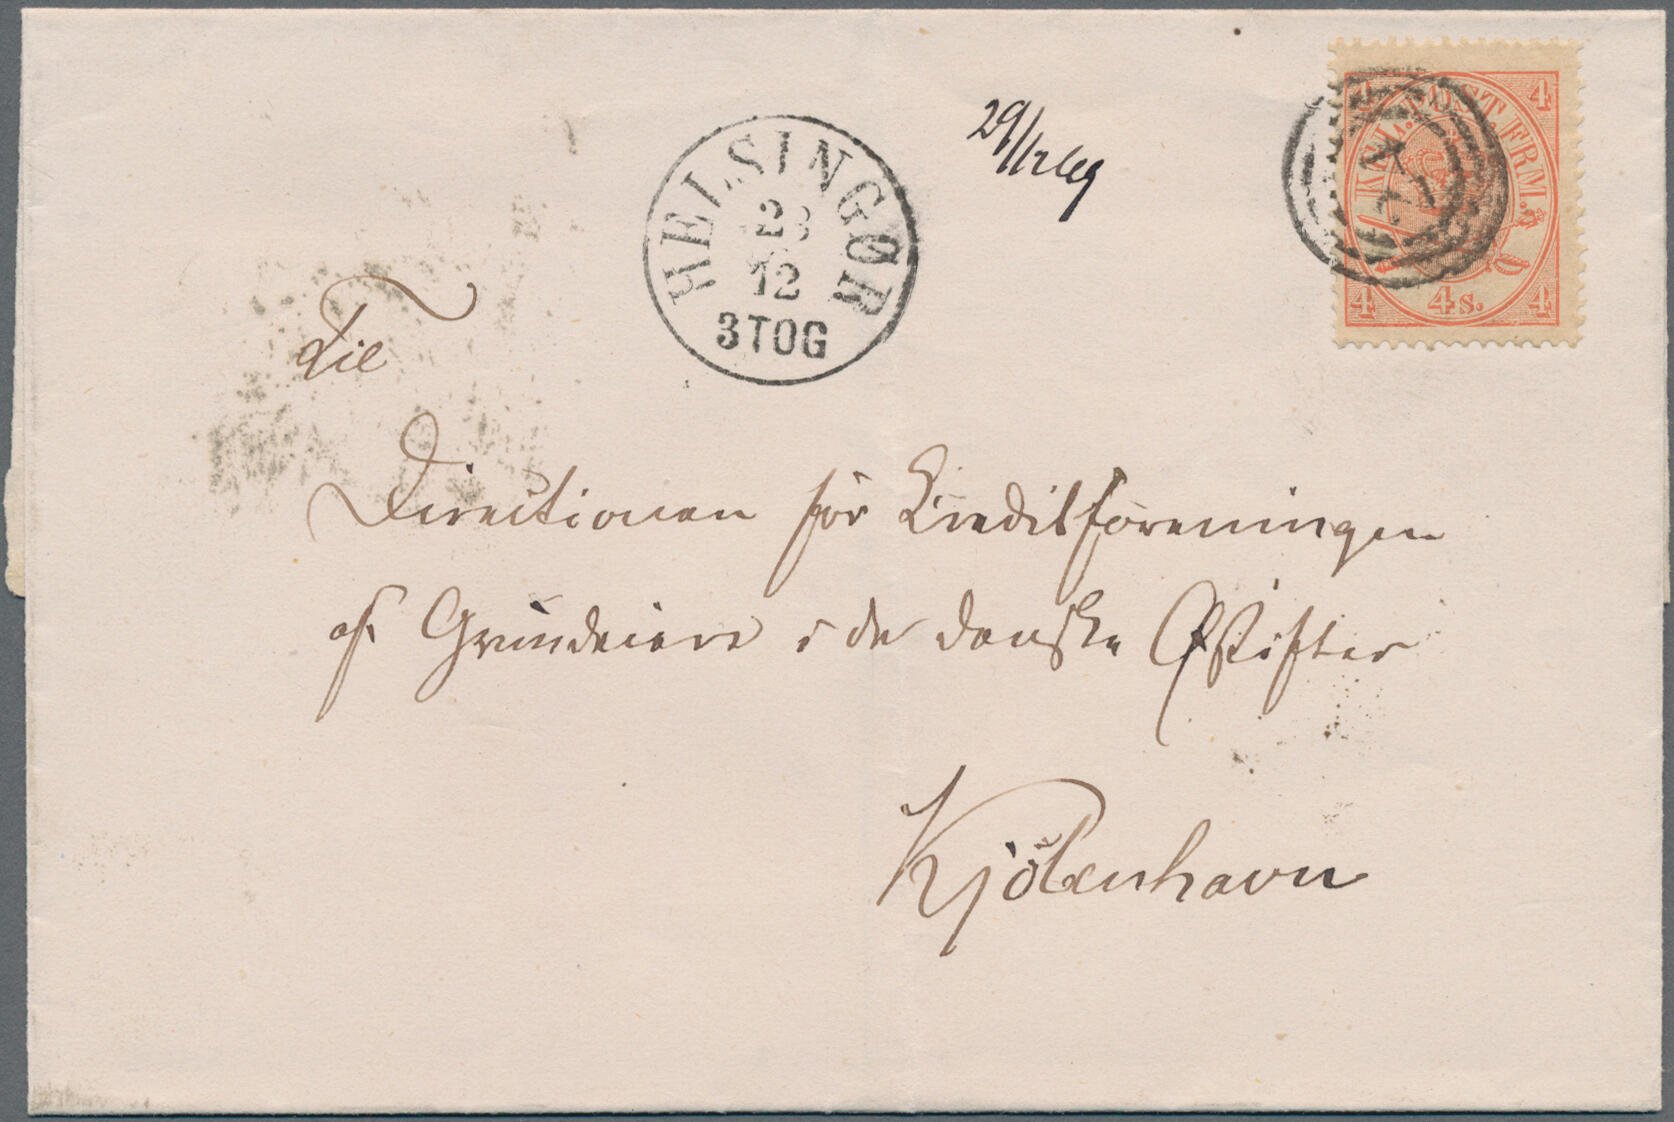 29/12 69
HELSINGØR
28
12
3 TOG
KGL. POST FRM.
4 4 4
4 s.
Til
Directionen for Creditforeningen
af Grundeiere i de danske Østifter
Kjöbenhavn